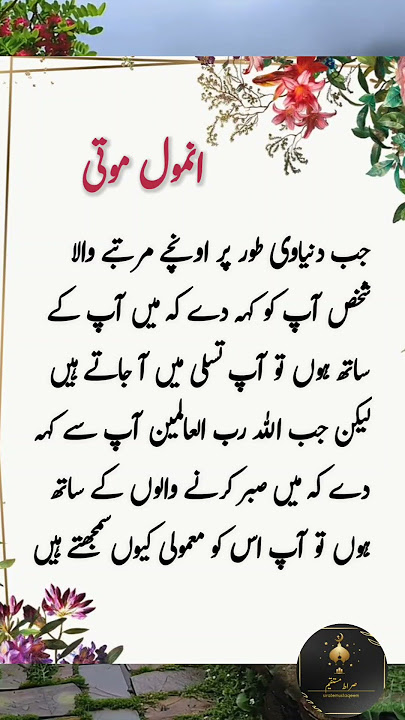 انمول موتی
جب دنیاوی طور پر اونچے مرتبے والا
شخص آپ کو کہہ دے کہ میں آپ کے
ساتھ ہوں تو آپ تسلی میں آ جاتے ہیں
لیکن جب اللہ رب العالمین آپ سے کہہ
دے کہ میں صبر کرنے والوں کے ساتھ
ہوں تو آپ اس کو معمولی کیوں سمجھتے ہیں
صراط مستقیم
siratemustaqeem